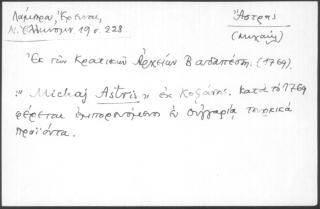 Λάμπρου, Ἔρευναι,
Ν. Ἑλληνομν 19 σ. 228
Ἄστρης
(Μιχαήλ)
Ἐκ τῶν Κρατικῶν Ἀρχείων Βουδαπέστης (1769).
:" Michaj Astris " ἐκ Κοζάνης. Κατὰ τὸ 1769
φέρεται ἐμπορευόμενος ἐν Οὑγγαρίᾳ τουρκικὰ
προϊόντα.